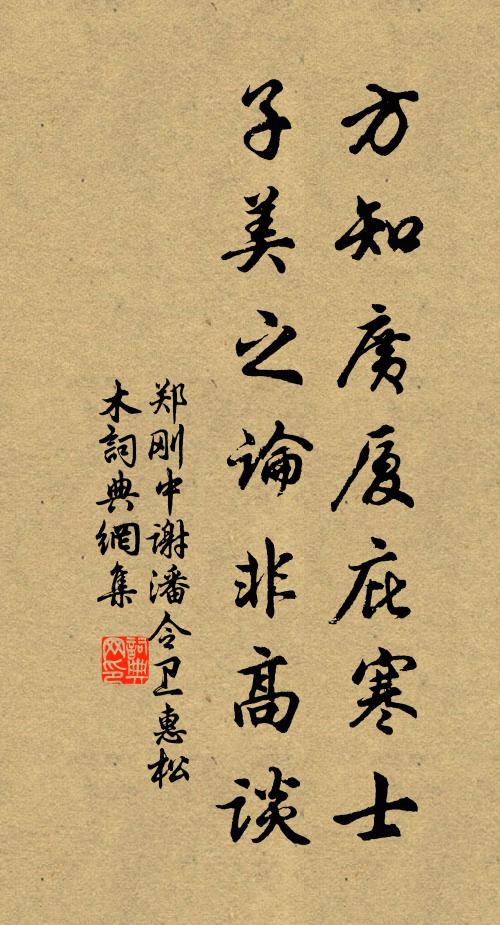 方知廣厦庇寒士
子美之論非高談
郑刚中谢潘令卫惠松
木詞典網集
詞典
网印